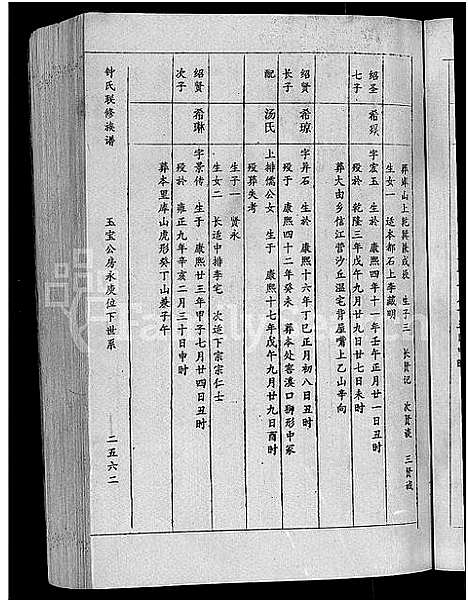 葬库山上乾兴陇戌辰 生子三 长贤记 次贤谟 三贤诚
生女一 适本都石上李藏明
绍圣七子 希 字宏玉 生於 康熙四年十一年壬午正月廿一日丑时
殁於 乾隆三年戊午九月廿九日廿七日未时
葬大由乡信江营沙丘温宅背屋嘴上乙山辛向
绍贤长子 希琼 字升石 生於 康熙十六年丁巳正月初八日丑时
殁于 康熙四十二年癸未 葬本处窖溪口狮形中冢
配 汤氏 上排儒公女 生于 康熙十七年戊午九月廿九日酉时
殁葬失考
生子一 贤永
生女二 长适中排李宅 次适下宗宗仁士
绍贤次子 希琳 字景传 生于 康熙廿三年甲子七月廿四日丑时
殁於 雍正九年辛亥二月三十日申时
葬本里库山虎形癸丁山兼子午
钟氏联修族谱 玉宝公房永庚位下世系 二五六二